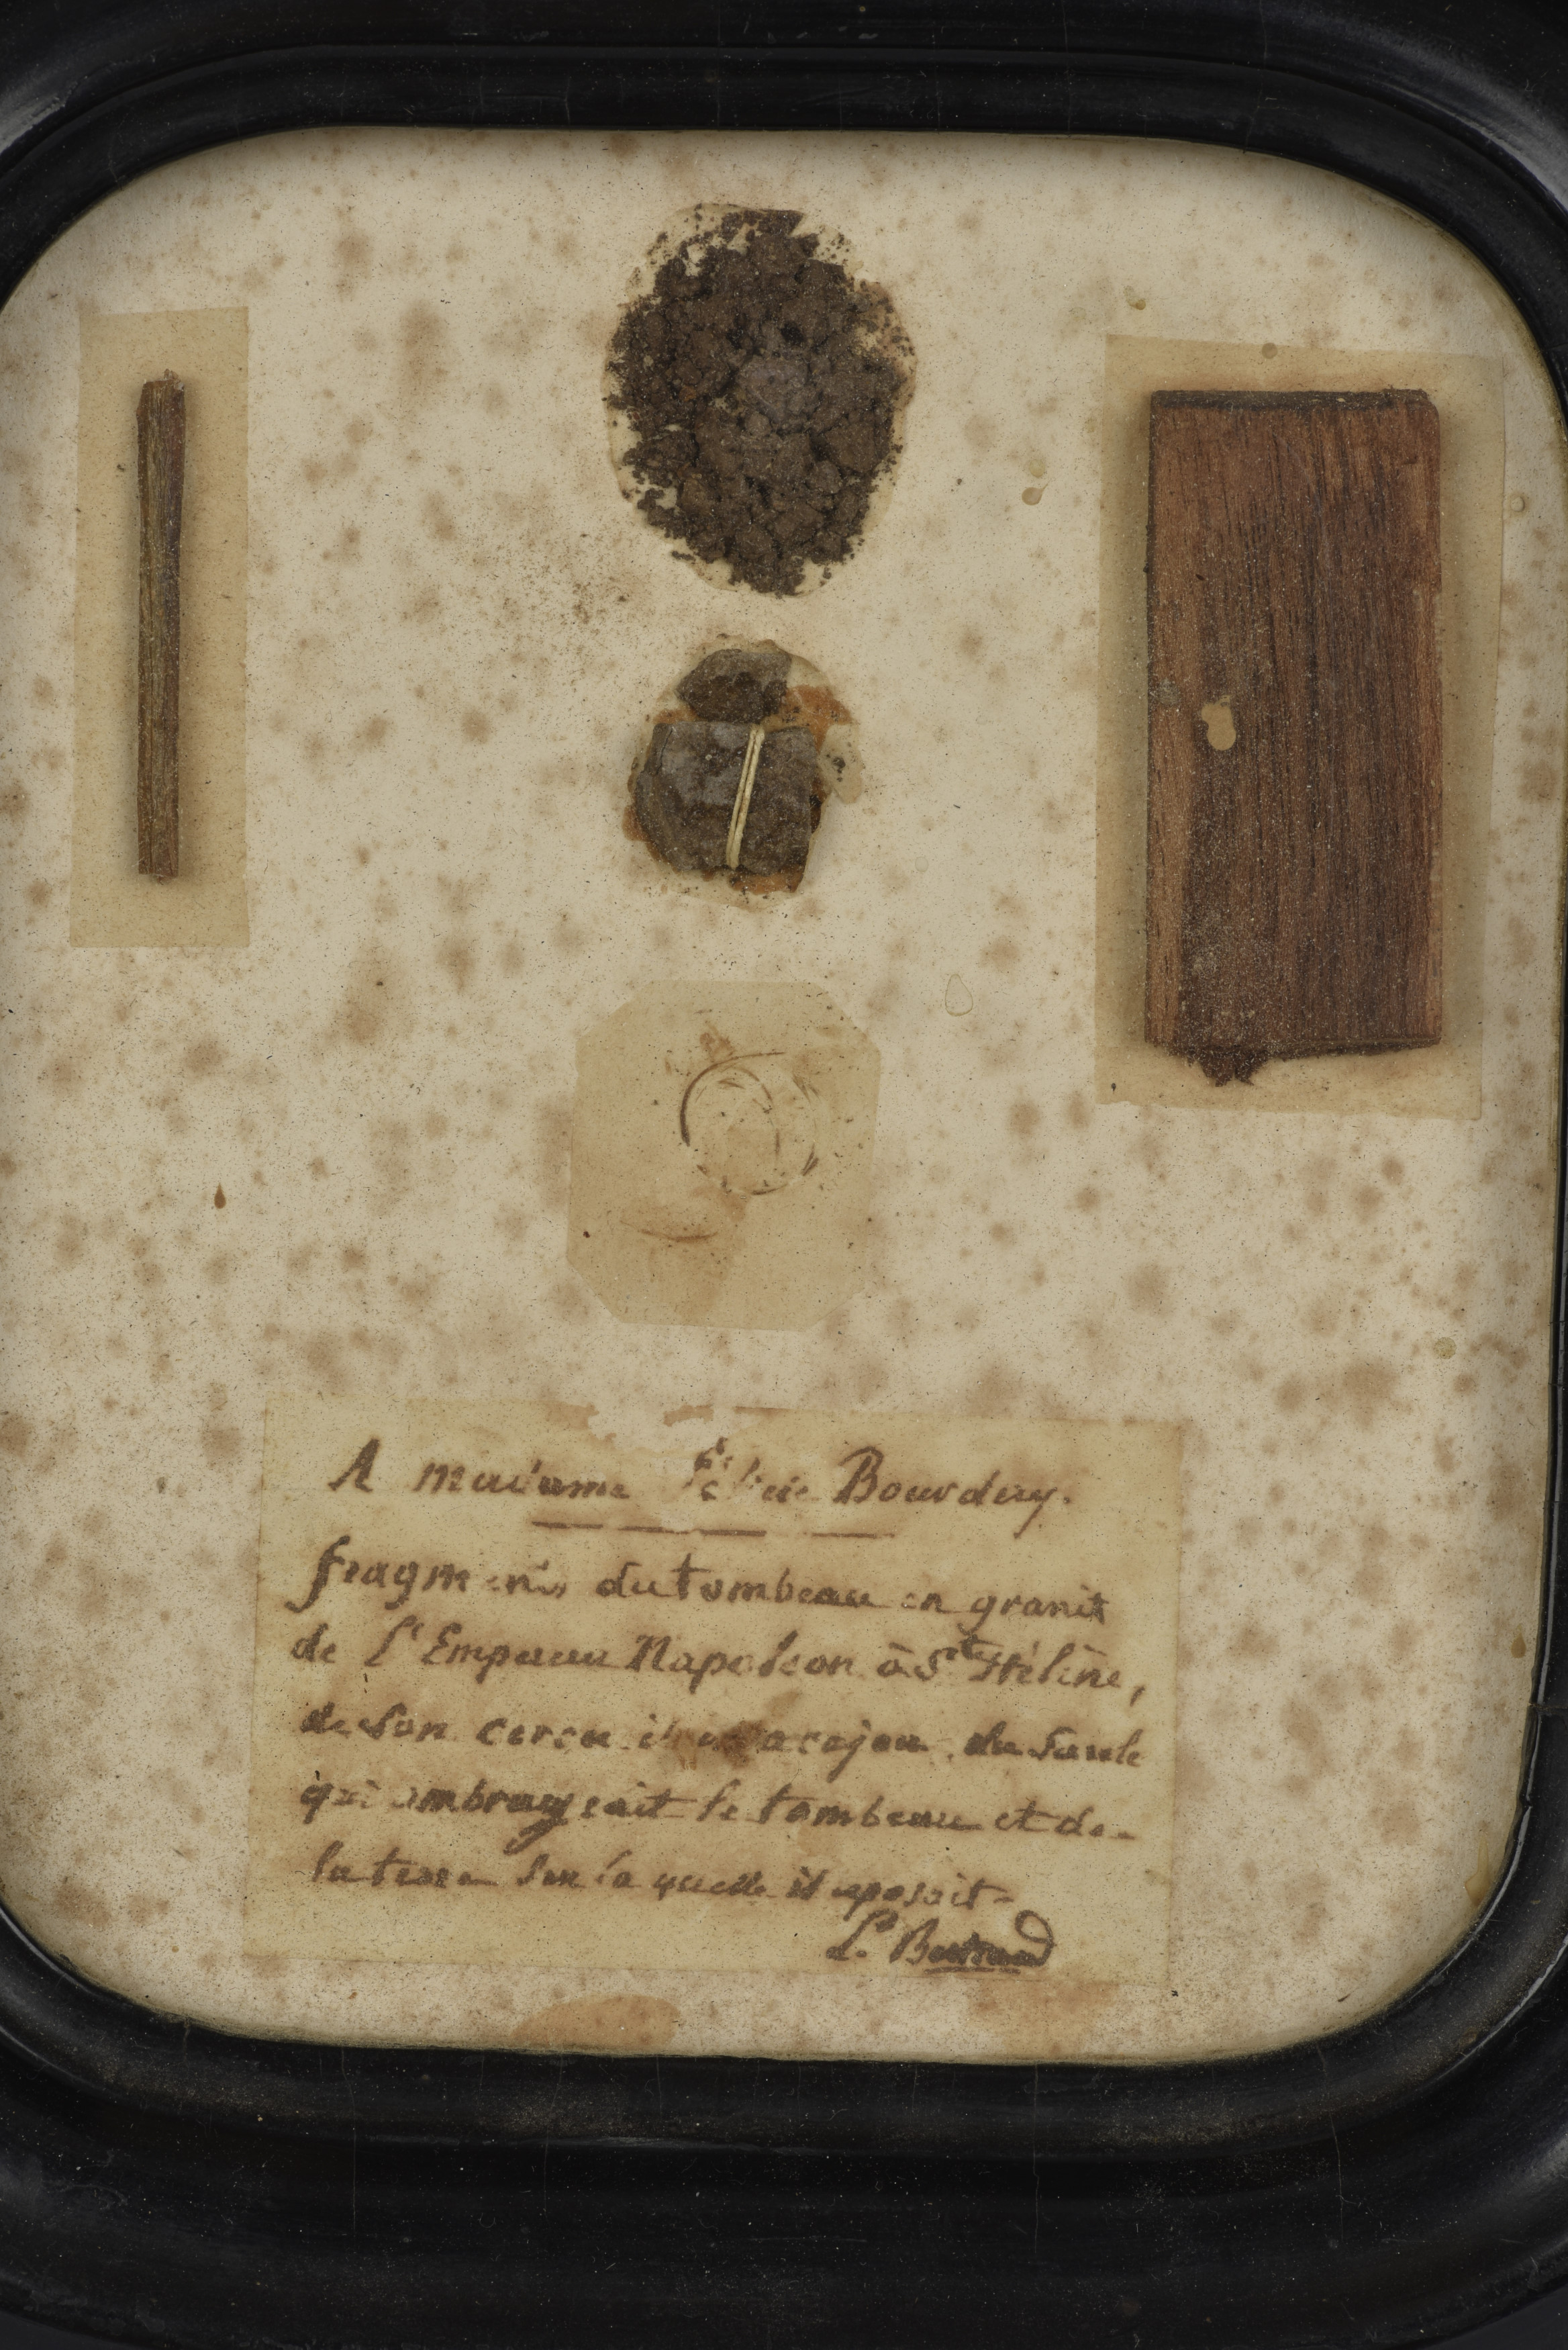 A madame Félicie Bourday.
fragments du tombeau en granit
de l'Empereur Napoleon à Ste Hélène,
de son cercueil acajou du Saule
qui ombrageait le tombeau et de
la terre sur la quelle il reposait
Bertrand